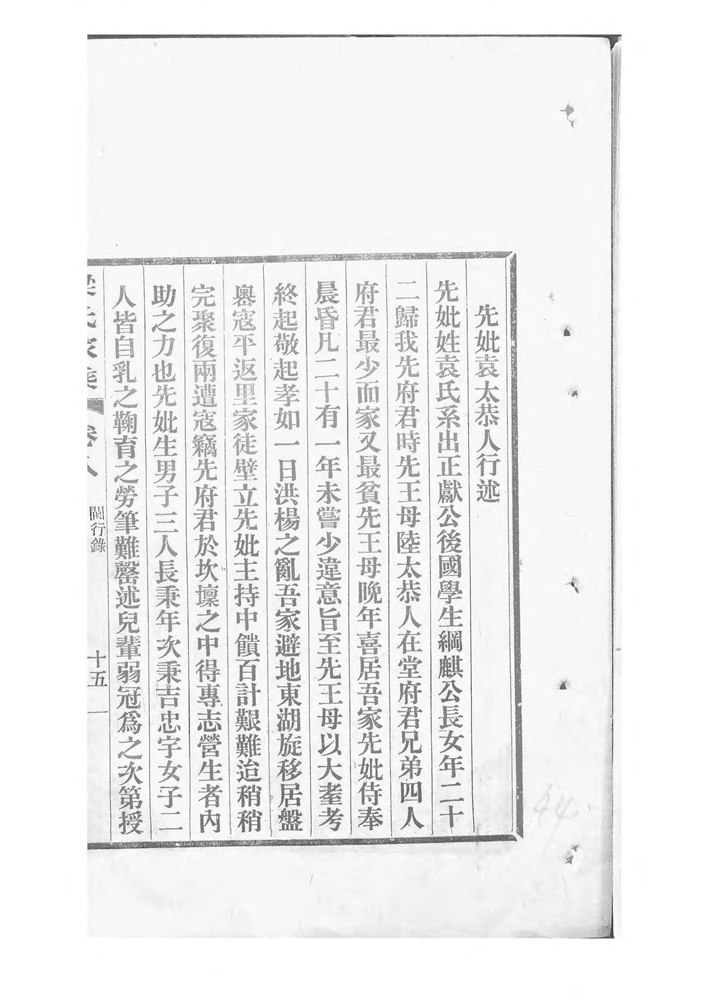 先妣袁太恭人行述
先妣姓袁氏系出正獻公後國學生綱麒公長女年二十
二歸我先府君時先王母陸太恭人在堂府君兄弟四人
府君最少而家又最貧先王母晚年喜居吾家先妣侍奉
晨昏凡二十有一年未嘗少違意旨至先王母以大耋考
終起敬起孝如一日洪楊之亂吾家避地東湖旋移居盤
嶴寇平返里家徒壁立先妣主持中饋百計艱難迨稍稍
完聚復兩遭寇竊先府君於坎壈之中得專志營生者內
助之力也先妣生男子三人長秉年次秉吉忠宇女子二
人皆自乳之鞠育之勞筆難罄述兒輩弱冠爲之次第授
氏家集 卷八 閫行錄 十五